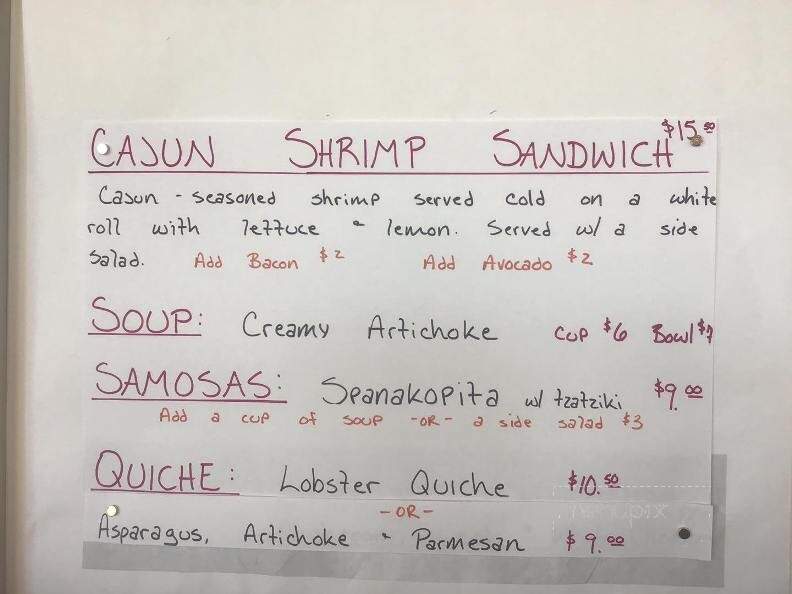 CAJUN SHRIMP SANDWICH $15.50
Cajun - seasoned shrimp served cold on a white
roll with lettuce & lemon. Served w/ a side
salad. Add Bacon $2 Add Avocado $2
SOUP: Creamy Artichoke CUP $6 Bowl $7
SAMOSAS: Spanakopita w/ tzatziki $9.00
Add a cup of soup -OR- a side salad $3
QUICHE: Lobster Quiche $10.50
-OR-
Asparagus, Artichoke & Parmesan $9.00